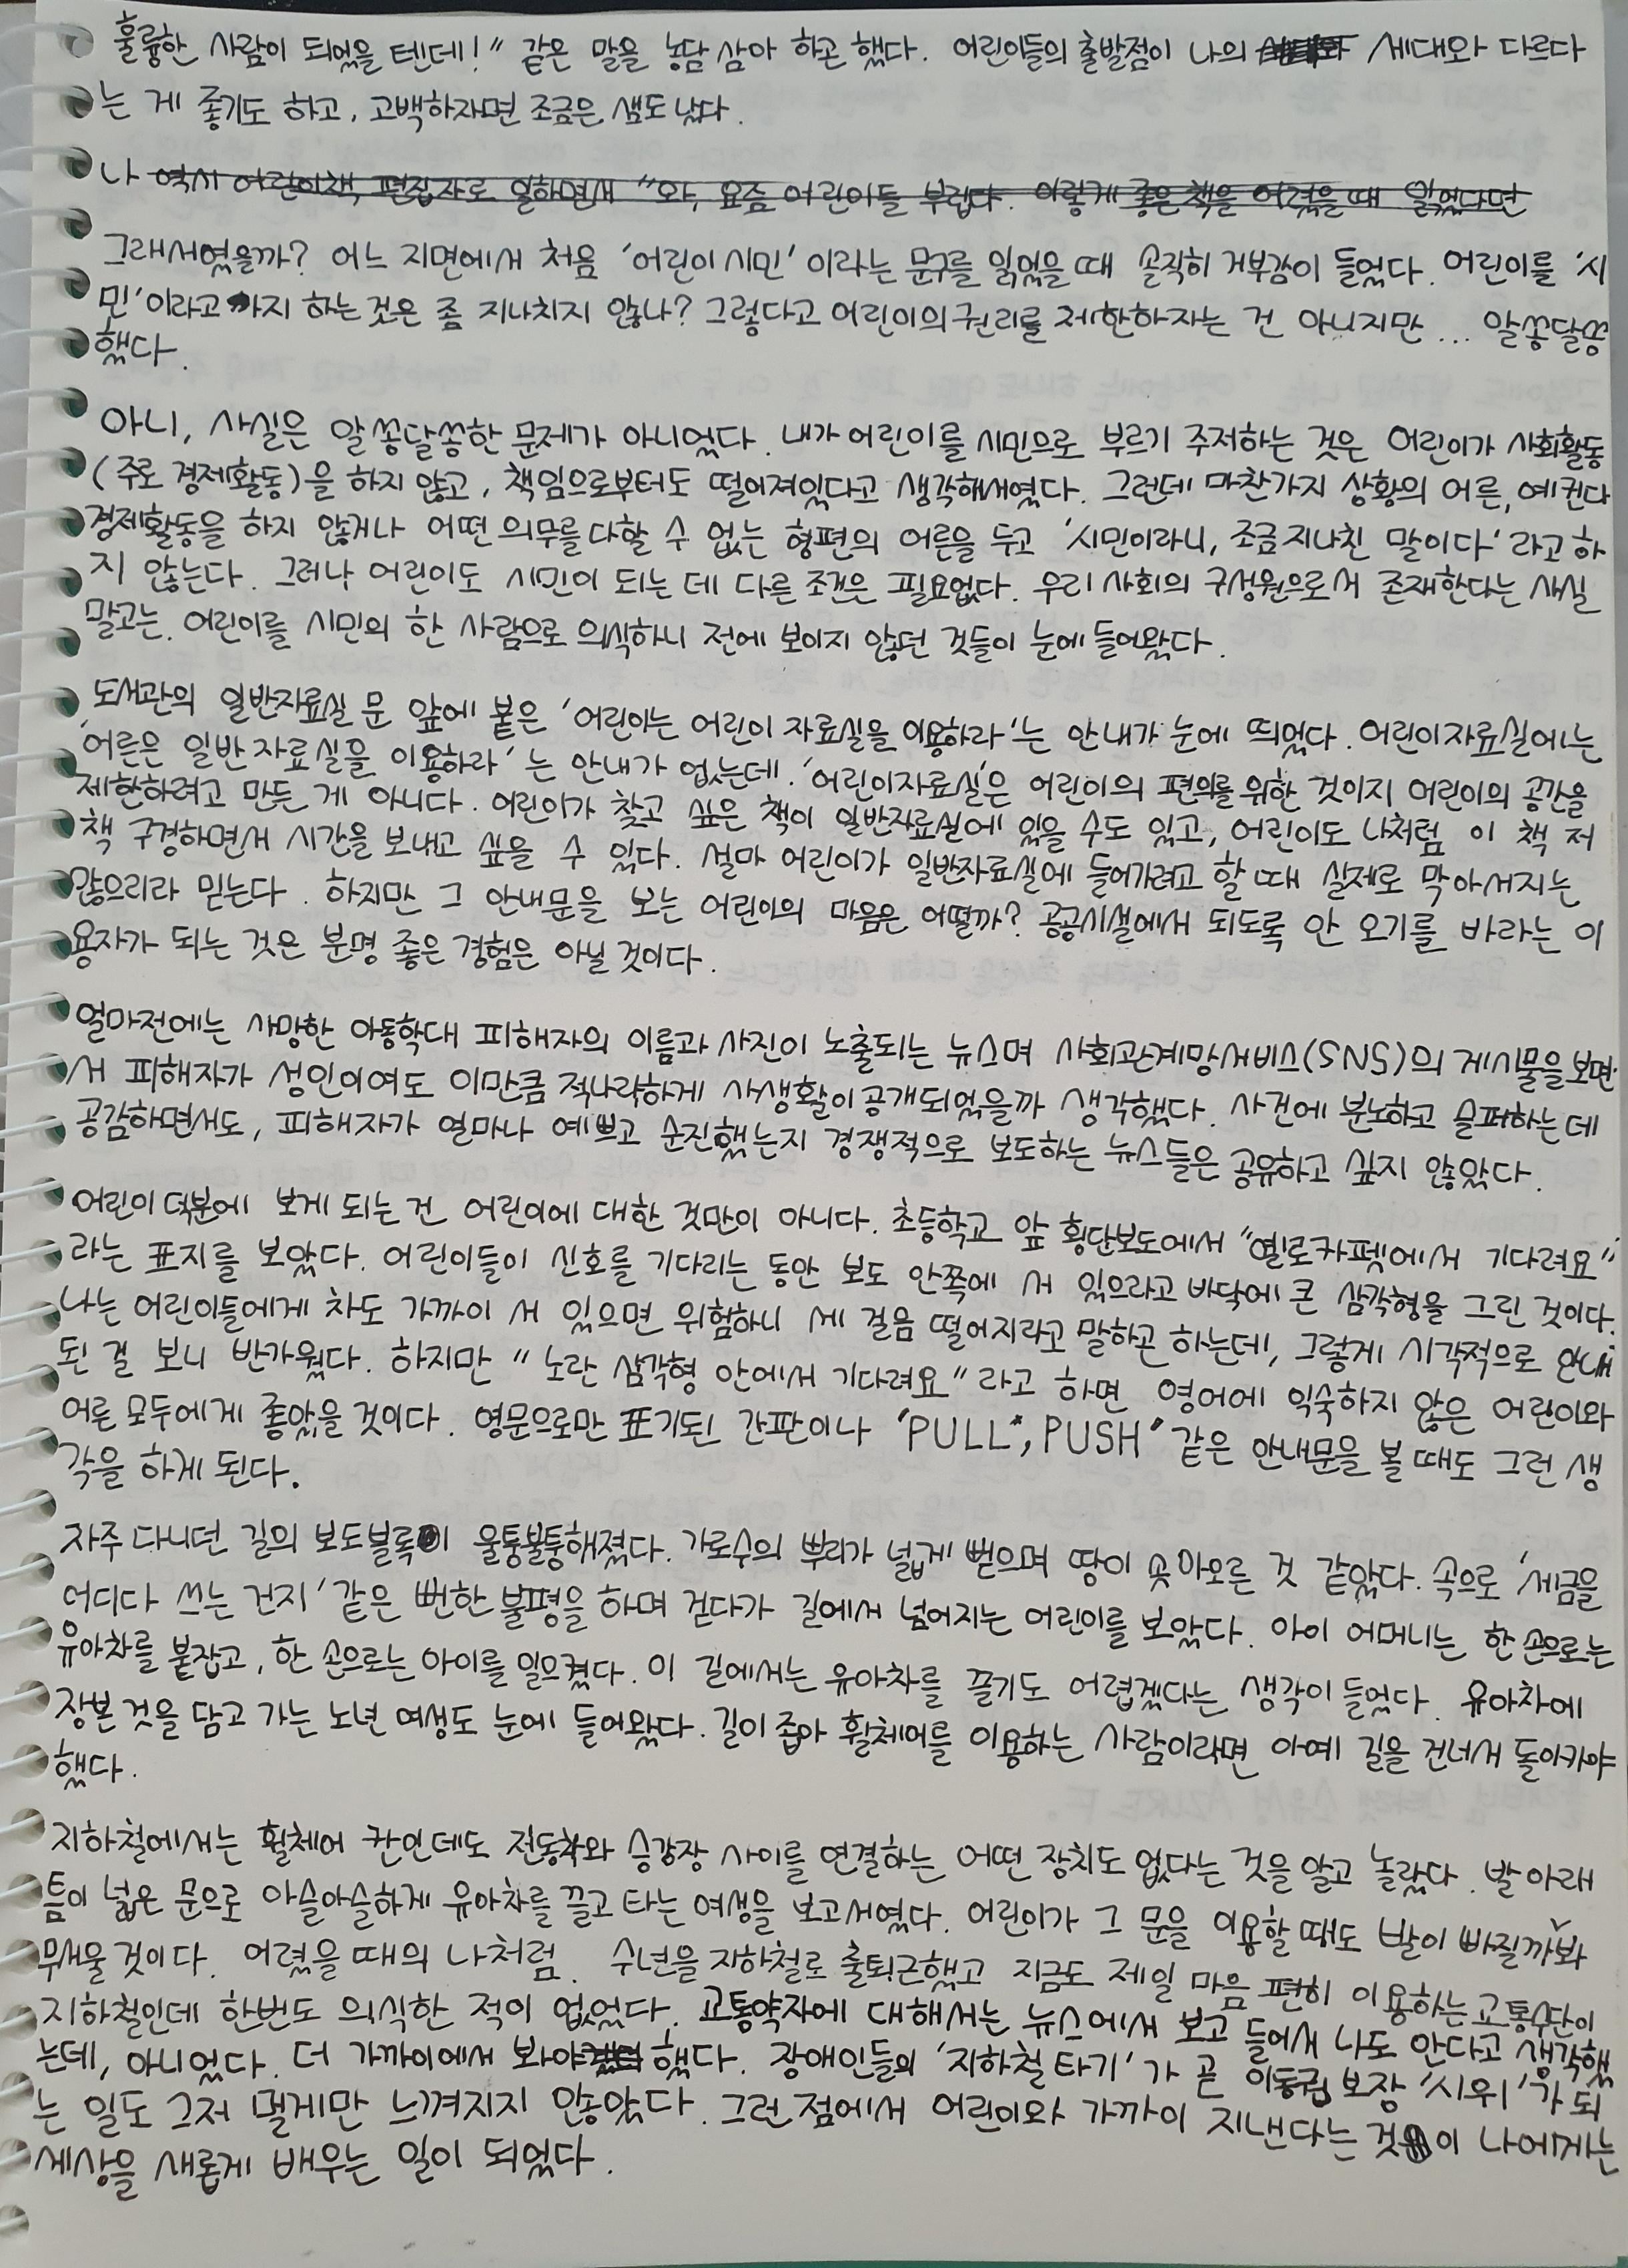 훌륭한 사람이 되었을 텐데!" 같은 말을 농담 삼아 하곤 했다. 어린이들의 출발점이 나의 세대와 다르다
는 게 좋기도 하고, 고백하자면 조금은 샘도 났다.
나 역시 어린이책 편집자로 일하면서 "와, 요즘 어린이들 부럽다. 이렇게 좋은 책을 어렸을 때 읽었다면
그래서였을까? 어느 지면에서 처음 '어린이 시민'이라는 문구를 읽었을 때 솔직히 거부감이 들었다. 어린이를 '시
민'이라고까지 하는 것은 좀 지나치지 않나? 그렇다고 어린이의 권리를 제한하자는 건 아니지만... 알쏭달쏭
했다.
아니, 사실은 알쏭달쏭한 문제가 아니었다. 내가 어린이를 시민으로 부르기 주저하는 것은 어린이가 사회활동
(주로 경제활동)을 하지 않고, 책임으로부터도 떨어져있다고 생각해서였다. 그런데 마찬가지 상황의 어른, 예컨대
경제활동을 하지 않거나 어떤 의무를 다할 수 없는 형편의 어른을 두고 '시민이라니, 조금 지나친 말이다'라고 하
지 않는다. 그러나 어린이도 시민이 되는 데 다른 조건은 필요없다. 우리 사회의 구성원으로서 존재한다는 사실
말고는. 어린이를 시민의 한 사람으로 의식하니 전에 보이지 않던 것들이 눈에 들어왔다.
도서관의 일반자료실 문 앞에 붙은 '어린이는 어린이 자료실을 이용하라'는 안내가 눈에 띄었다. 어린이자료실에는
'어른은 일반자료실을 이용하라'는 안내가 없는데. '어린이자료실'은 어린이의 편의를 위한 것이지 어린이의 공간을
제한하려고 만든 게 아니다. 어린이가 찾고 싶은 책이 일반자료실에 있을 수도 있고, 어린이도 나처럼 이 책 저
책 구경하면서 시간을 보내고 싶을 수 있다. 설마 어린이가 일반자료실에 들어가려고 할 때 실제로 막아서지는
않으리라 믿는다. 하지만 그 안내문을 보는 어린이의 마음은 어떨까? 공공시설에서 되도록 안 오기를 바라는 이
용자가 되는 것은 분명 좋은 경험은 아닐 것이다.
얼마전에는 사망한 아동학대 피해자의 이름과 사진이 노출되는 뉴스며 사회관계망서비스(SNS)의 게시물을 보면
서 피해자가 성인이여도 이만큼 적나라하게 사생활이 공개되었을까 생각했다. 사건에 분노하고 슬퍼하는데
공감하면서도, 피해자가 얼마나 예쁘고 순진했는지 경쟁적으로 보도하는 뉴스들은 공유하고 싶지 않았다.
어린이 덕분에 보게 되는 건 어린이에 대한 것만이 아니다. 초등학교 앞 횡단보도에서 "옐로카펫에서 기다려요"
라는 표지를 보았다. 어린이들이 신호를 기다리는 동안 보도 안쪽에 서 있으라고 바닥에 큰 삼각형을 그린 것이다.
나는 어린이들에게 차도 가까이 서 있으면 위험하니 세 걸음 떨어지라고 말하곤 하는데, 그렇게 시각적으로 안내
된 걸 보니 반가웠다. 하지만 "노란 삼각형 안에서 기다려요"라고 하면 영어에 익숙하지 않은 어린이와
어른 모두에게 좋았을 것이다. 영문으로만 표기된 간판이나 'PULL', PUSH' 같은 안내문을 볼 때도 그런 생
각을 하게 된다.
자주 다니던 길의 보도블록이 울퉁불퉁해졌다. 가로수의 뿌리가 넓게 뻗으며 땅이 솟아오른 것 같았다. 속으로 '세금을
어디다 쓰는 건지' 같은 뻔한 불평을 하며 걷다가 길에서 넘어지는 어린이를 보았다. 아이 어머니는 한 손으로는
유아차를 붙잡고, 한 손으로는 아이를 일으켰다. 이 길에서는 유아차를 끌기도 어렵겠다는 생각이 들었다. 유아차에
장본 것을 담고 가는 노년 여성도 눈에 들어왔다. 길이 좁아 휠체어를 이용하는 사람이라면 아예 길을 건너서 돌아가야
했다.
지하철에서는 휠체어 칸인데도 전동차와 승강장 사이를 연결하는 어떤 장치도 없다는 것을 알고 놀랐다. 발 아래
틈이 넓은 문으로 아슬아슬하게 유아차를 끌고 타는 여성을 보고서였다. 어린이가 그 문을 이용할 때도 발이 빠질까봐
무서울 것이다. 어렸을 때의 나처럼. 수년을 지하철로 출퇴근했고 지금도 제일 마음 편히 이용하는 교통수단이
지하철인데 한번도 의식한 적이 없었다. 교통약자에 대해서는 뉴스에서 보고 들어서 나도 안다고 생각했
는데, 아니었다. 더 가까이에서 봐야 했다. 장애인들의 '지하철 타기'가 곧 이동권 보장 '시위'가 되
는 일도 그저 멀게만 느껴지지 않았다. 그런 점에서 어린이와 가까이 지낸다는 것이 나에게는
세상을 새롭게 배우는 일이 되었다.